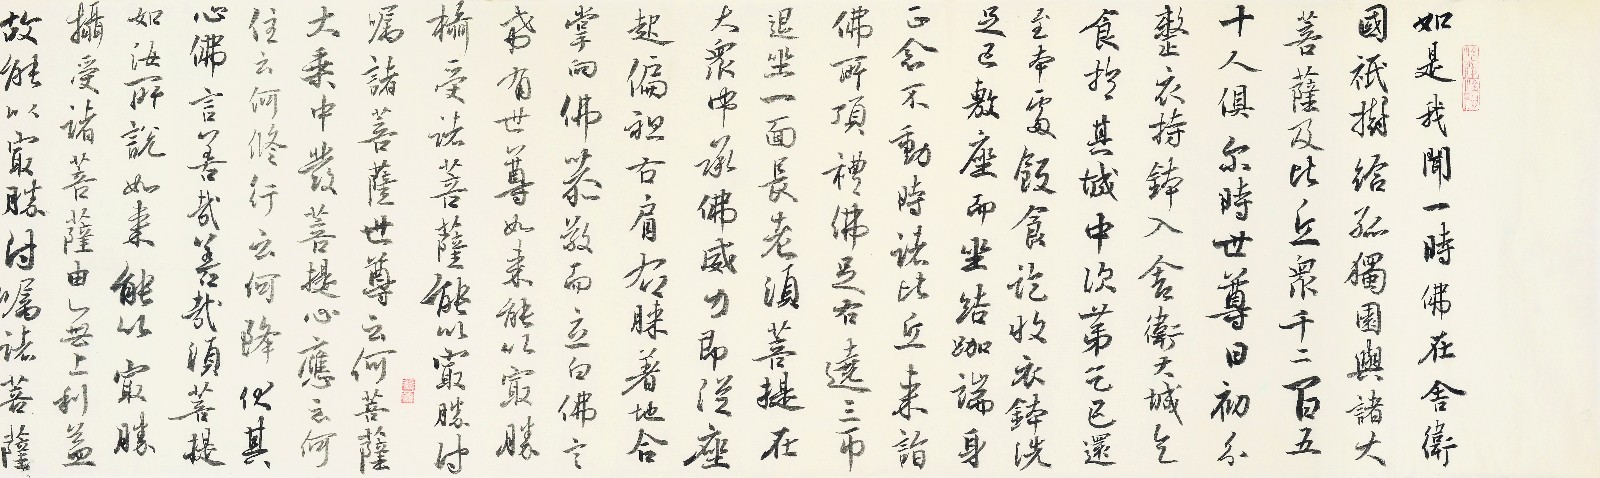 如是我聞一時佛在舍衛
國祇樹給孤獨園與諸大
菩薩及比丘眾千二百五
十人俱尔時世尊日初分
整衣持鉢入舍衛大城乞
食於其城中次第乞已還
至本處飯食訖收衣鉢洗
足已敷座而坐結跏端身
正念不動時諸比丘来詣
佛所頂禮佛足右遶三帀
退坐一面長老須菩提在
大眾中承佛威力即從座
起偏袒右肩右膝著地合
掌向佛恭敬而立白佛言
希有世尊如来能以最勝
攝受諸菩薩能以最勝付
囑諸菩薩世尊云何菩薩
大乘中發菩提心應云何
住云何修行云何降伏其
心佛言善哉善哉須菩提
如汝所說如来能以最勝
攝受諸菩薩由无上利益
故能以最勝付囑諸菩薩